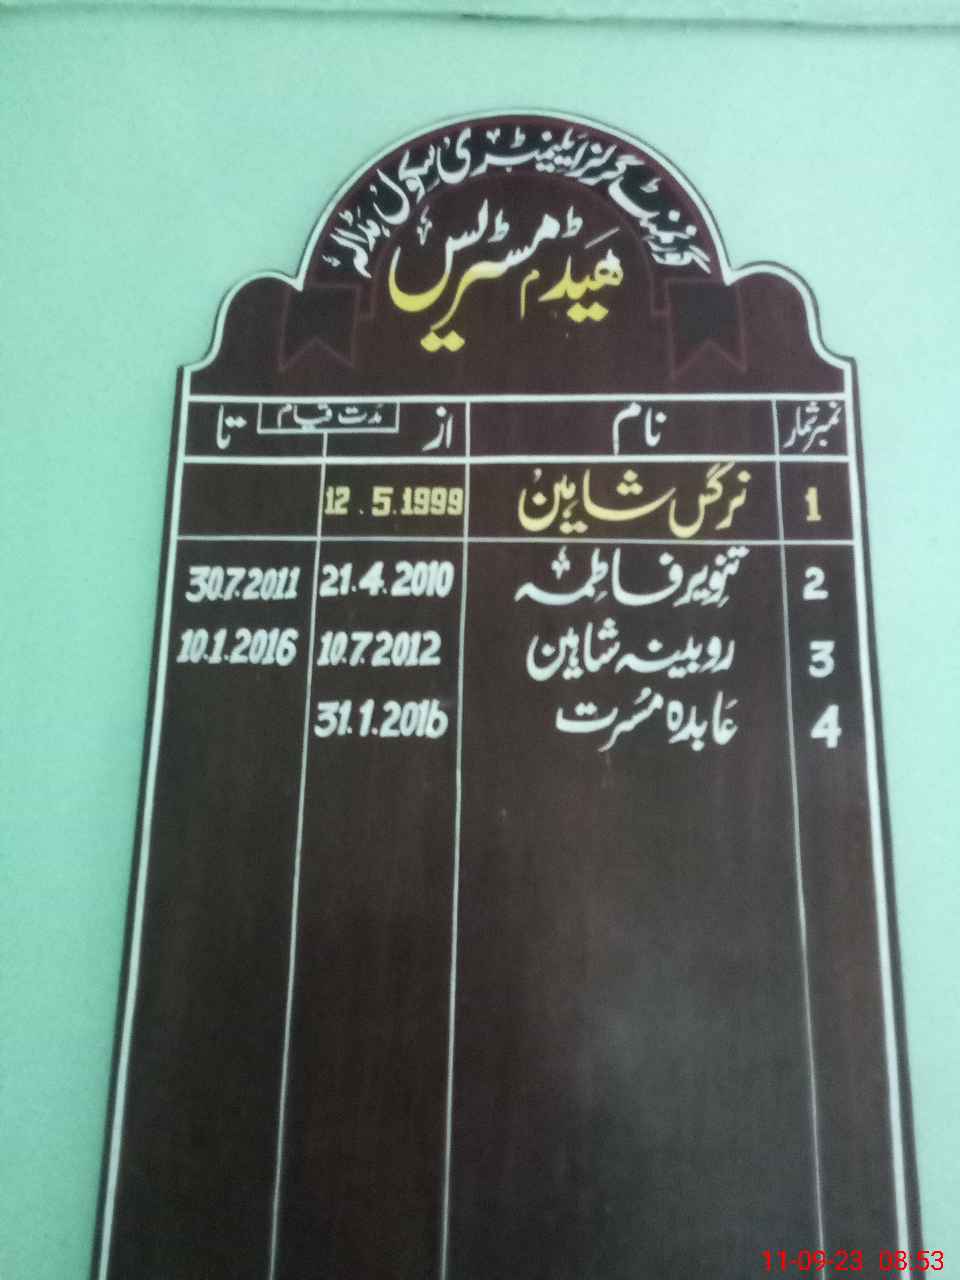 گورنمنٹ گرلز ایلیمنٹری سکول ہڈالہ
ھیڈ مسٹریس
نمبر شمار نام از مدت قیام تا
1 نرگس شاہین 12.5.1999
2 تنویر فاطمہ 21.4.2010 30.7.2011
3 روبینہ شاہین 10.7.2012 10.1.2016
4 عابدہ مسرت 31.1.2016
11-09-23 08:53